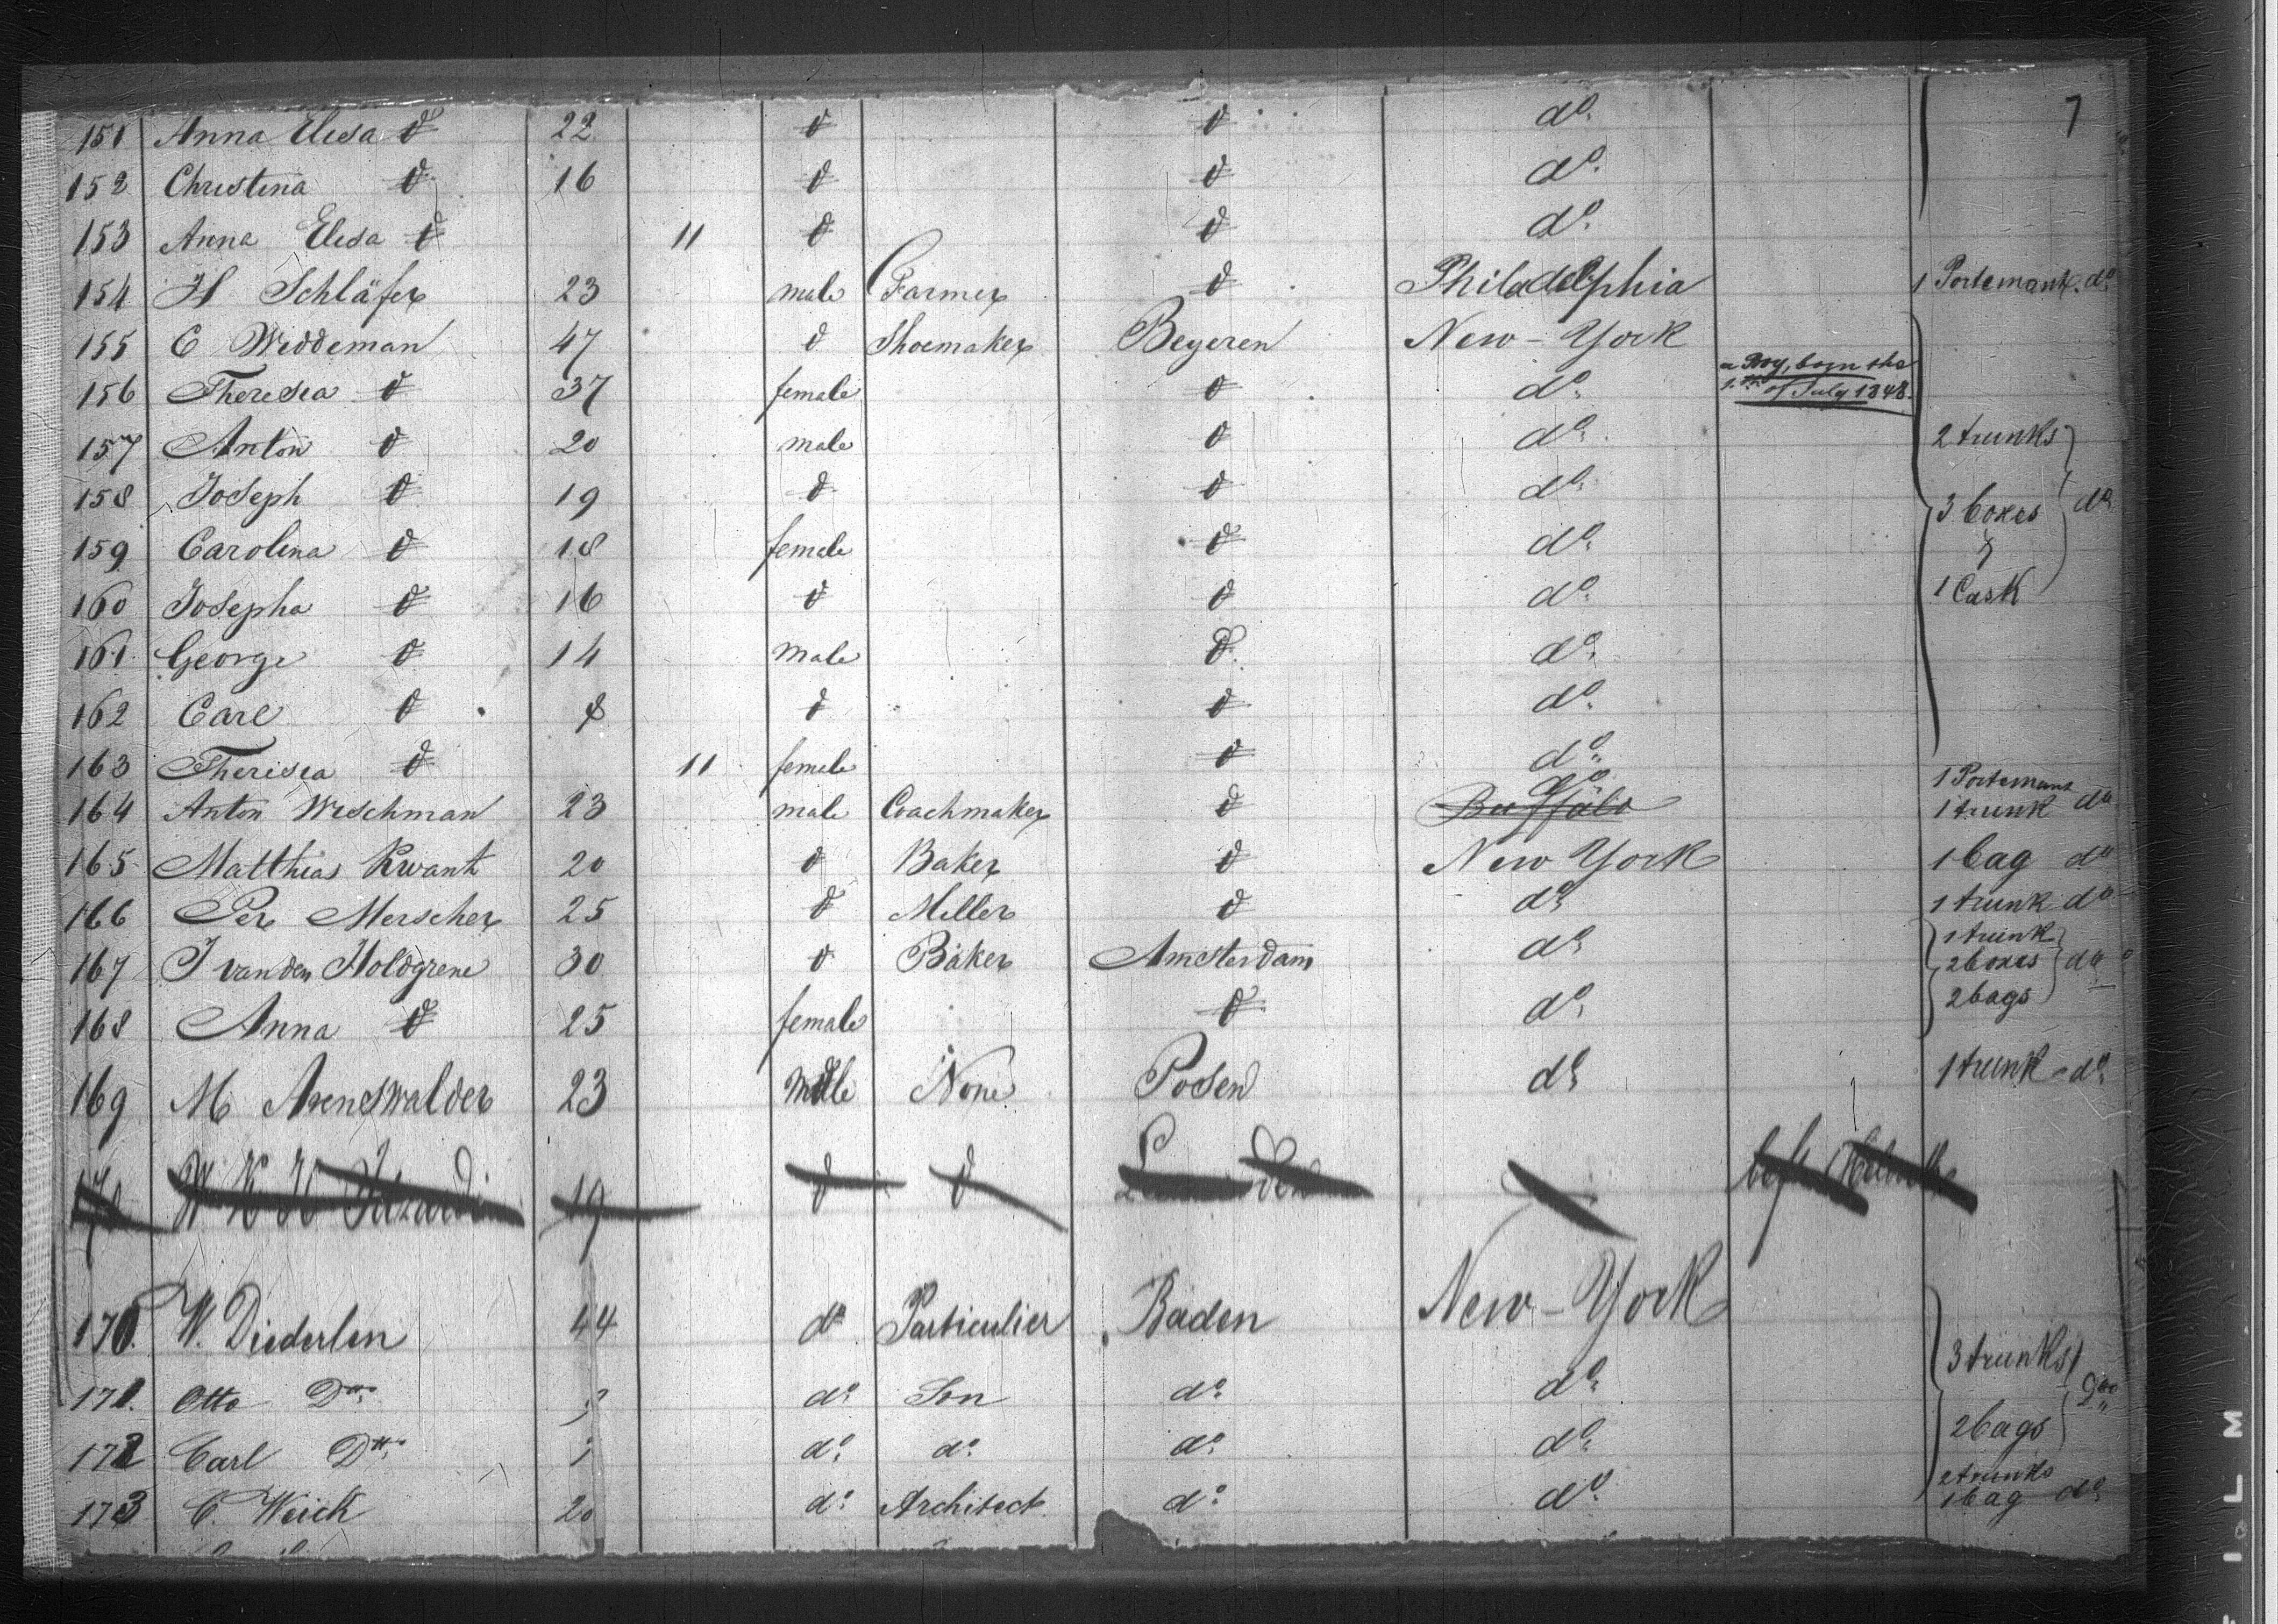 7
151 Anna Elisa dº 22 dº dº dº
152 Christina dº 16 dº dº dº
153 Anna Elisa dº 11 dº dº dº
154 H Schläfer 23 male Farmer dº Philadelphia 1 Portemant. dº
155 C Widdeman 47 dº Shoemaker Beyeren New-York
156 Theresia dº 37 female dº dº a Boy, born the
of July 1848.
157 Anton dº 20 male dº dº 2 trunks
158 Joseph dº 19 dº dº dº
3 boxes dº
159 Carolina dº 18 female dº dº
&
160 Josepha dº 16 dº dº dº 1 Cask
161 George dº 14 male dº dº
162 Carl dº 8 dº dº dº
163 Therisia dº 11 female dº dº
1 Portemant
164 Anton Weschman 23 male Coachmaker dº Buffalo dº 1 trunk dº
165 Matthias Kwant 20 dº Baker dº New York 1 bag dº
166 Per Merscher 25 dº Miller dº dº 1 trunk dº
1 trunk
167 J van den Holdgrene 30 dº Baker Amsterdam dº 2 boxes dº
2 bags
168 Anna dº 25 female dº dº
169 M Arenswalder 23 male None Posen dº 1 trunk dº
19 dº dº
170. W. Diederlen 44 dº Particulier Baden New-York
3 trunks
171. Otto Dº dº Son dº dº dº
2 bags
172 Carl Dº dº dº dº dº
2 trunks
173 C. Weick 20 dº Architect dº dº 1 bag dº
M
L